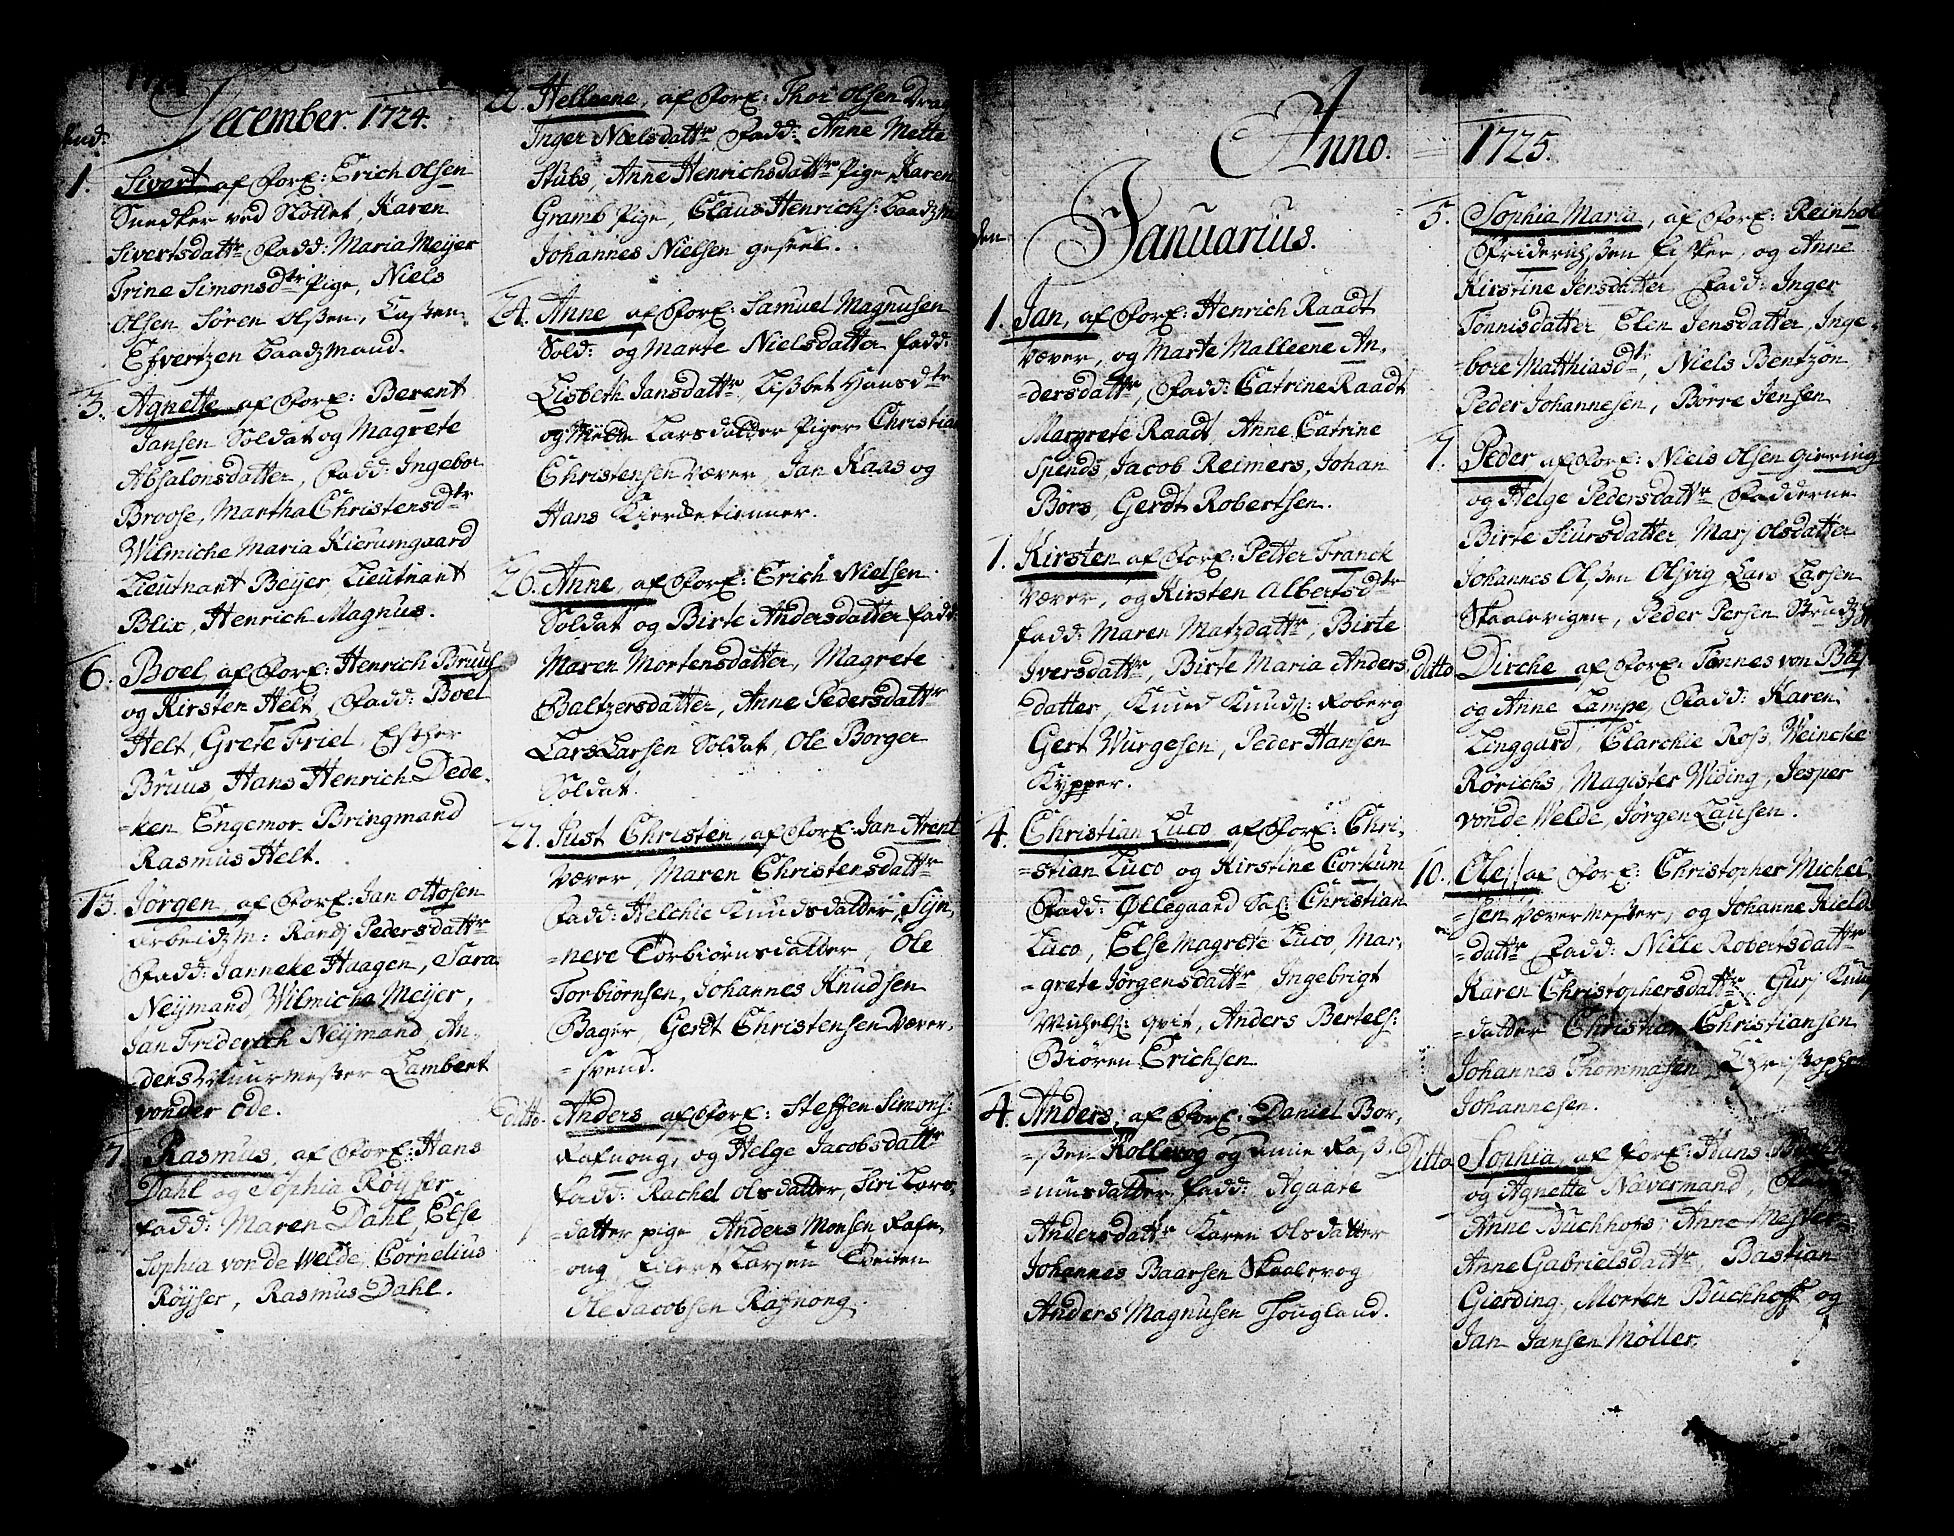 December. 1724.
1. Sivert af Foræ: Erich Olsen
Snedker ved Slottet, Karen
Sivertsdattr Fadd: Maria Meijer
Trine Simonsdtr Pige, Niels
Olsen, Søren Olsen, Casten
Efvertzen Baadzmand.
3. Agnette af Foræ: Berent
Jansen Soldat og Magrete
Absalonsdatter, Fadd: Ingebor
Broose, Martha Christensdtr
Wilmiche Maria Kierumgaard
Lieutnant Beijer, Lieutnant
Blix, Henrich Magnus.
6. Boel af Foræ: Henrich Bruus
og Kirsten Helt, Fadd: Boel
Helt, Grete Friel, Esther
Bruus Hans Henrich Dede-
-ken Engemor. Bringmand
Rasmus Helt.
13. Jørgen af Foræ: Jan Ottosen
Arbeidzm: Randj Pedersdattr
Fadd: Janneke Haagen, Sara
Neijmand, Wilmiche Meijer,
Jan Friderich Neijmand, An-
-ders Muurmester Lambert
vonder Ode.
7 Rasmus, af Foræ: Hans
Dahl og Sophia Röyser
Fadd: Maren Dahl, Else
Sophia von de Welde, Cornelius
Röyser, Rasmus Dahl.
22. Helleene, af Foræ: Thor Olsen
Inger Nielsdattr Fadd: Anne Mette
Stubs, Anne Henrichsdattr Pige, Karen
Gramb Pige, Claus Henrichs: Baadzm
Johannes Nielsen geseel.
24. Anne af Foræ: Samuel Magnusen
Sold: og Marte Nielsdatter Fadd:
Lisbeth Jansdattr, Lisbet Hansdtr
og Larsdatter Piger Christia
Christensen Væver, Jan Kaas og
Hans Kierdetienner.
26. Anne af Foræ: Erich Nielsen
Soldat og Birte Andersdatter Fadd:
Maren Mortensdatter, Magrete
Baltzersdatter, Anne Pedersdattr
Lars Larsen Soldat, Ole Borger
Soldat.
27. Just Christen, af Foræ: Jan Arent
Væver, Maren Christensdattr
Fadd: Helchie Knudsdatter, Sÿn-
-neve Torbiørnsdatter, Ole
Torbiørnsen, Johannes Knudsen
Bager, Gerdt Christensen Væver-
-svend.
ditto. Anders af Foræ: Steffen Simons:
Rafnong, og Helge Jacobsdattr
Fadd: Rachel Olsdatter, Siri Lars-
-datter pige Anders Monsen Rafn-
-ong, Eilert Larsen
Ole Jacobsen Rafnong.
Anno. 1725.
Januarius.
den
1. Jan, af Foræ: Henrich Raadt
Væver, og Marte Malleene An-
-dersdattr, Fadd: Catrine Raadt
Margrete Raadt, Anne Catrine
Spends, Jacob Reimers, Johan
Börs, Gerdt Robertsen.
1. Kirsten af Foræ: Petter Franck
Væver, og Kirsten Albertsdtr
Fadd: Maren Matzdattr, Birte
Iversdattr, Birte Maria Anders
-datter, Knud Knuds: Roberg
Gert Wurgesen, Peder Hansen
Kypper.
4. Christian Luco af Foræ: Chri-
-stian Luco og Kirstine Corkum
Fadd: Øllegaard Sal: Christian
Luco, Else Magrete Luco, Mar-
-grete Jørgensdattr, Ingebrigt
Michels: qvit, Anders Bertels:
Biören Erichsen.
4. Anders, af Foræ: Daniel Bor-
-sen Kollevog og Anne Ras-
-musdatter Fadd: Agaate
Andersdattr Karen Olsdatter
Johannes Baarsen Skaalevog
Anders Magnusen Hougland.
5. Sophia Maria, af Foræ: Reinhol
Friderichsen Fisker, og Anne
Kirstine Jensdatter Fadd: Inger
Tönnisdatter, Elen Jensdatter, Inge-
-bore Matthiasdtr, Niels Bentzon
Peder Johannesen, Børre Jensen
7. Peder, af Foræ: Niels Olsen Gierning
og Helge Pedersdattr Fadderne
Birte Siursdatter, Marj Olsdatter
Johannes Olsen Olsvig Lars Larsen
Skaalevigen, Peder Persen
ditto Dirche af Foræ: Tønnes von
og Anne Lampe, Fadd: Karen
Linggard, Clarchie Ross, Weincke
Rørichs, Magister Widing, Jesper
von de Welde, Jørgen Lausen.
10. Ole, af Foræ: Christopher Michel
-sen Vævermester, og Johanne Kields
-dattr Fadd: Nille Robertsdattr
Karen Christophersdattr, Gurj Knus
-datter Christian Christiansen
Johannes Thommasen, Christopher
Johannesen.
Ditto Sophia, af Foræ: Hans
og Agnette Nævermand, Fadd:
Anne Buchhofs, Anne Mester-
Anne Gabrielsdattr, Bastian
Gierding, Morten Buchhoff og
Jan Jansen Møller.